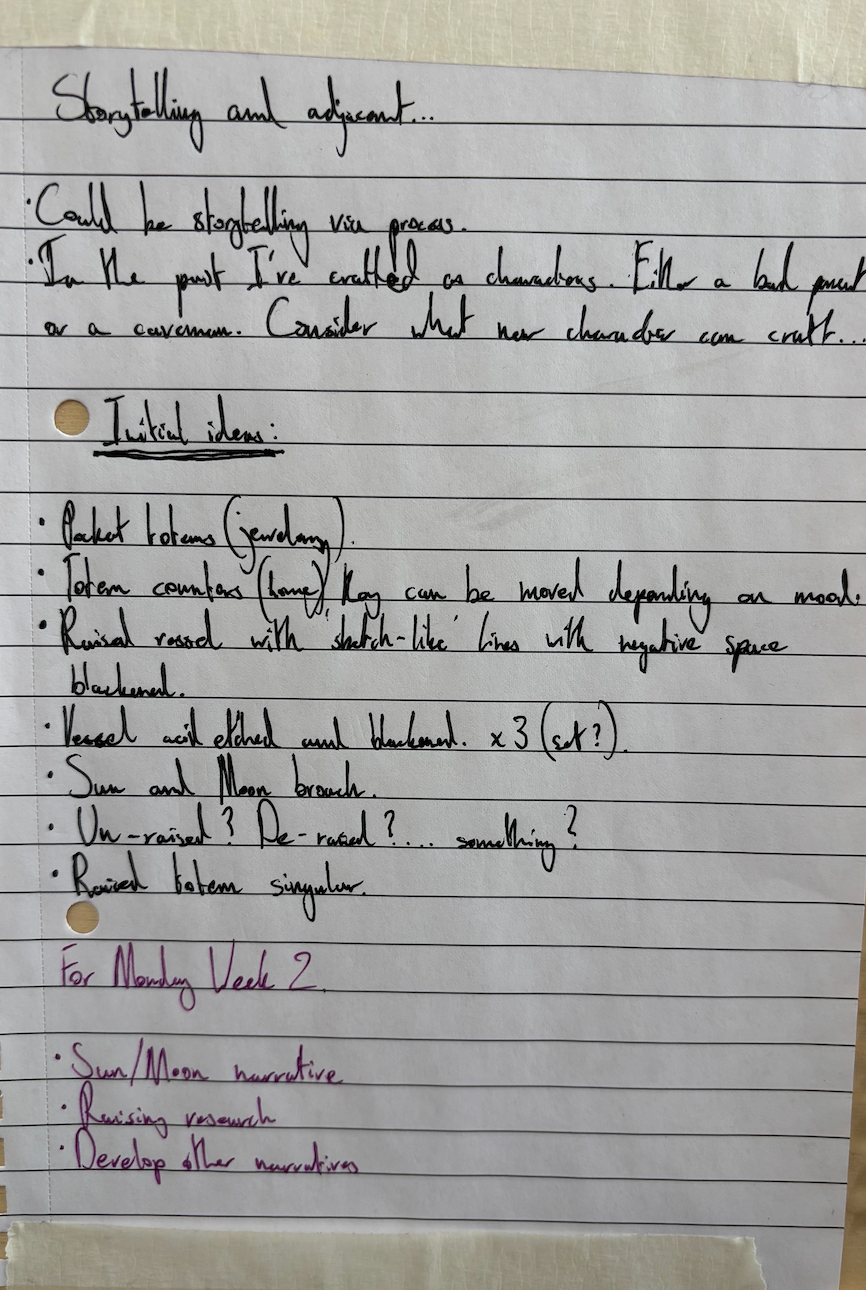 Storytelling and adjacent...
· Could be storytelling via process.
· In the past I've crafted as characters. Either a bad parent
or a caveman. Consider what new character can craft...
Initial ideas:
· Pocket totems (jewelary).
· Totem counters (home), they can be moved depending on mood.
· Raised vessel with 'sketch-like' lines with negative space
blackened.
· Vessel acid etched and blackened. x3 (set?).
· Sun and Moon brooch.
· Un-raised? De-raised?.... something?
· Raised totem singular.
For Monday Week 2.
· Sun/Moon narrative
· Raising research
· Develop other narratives